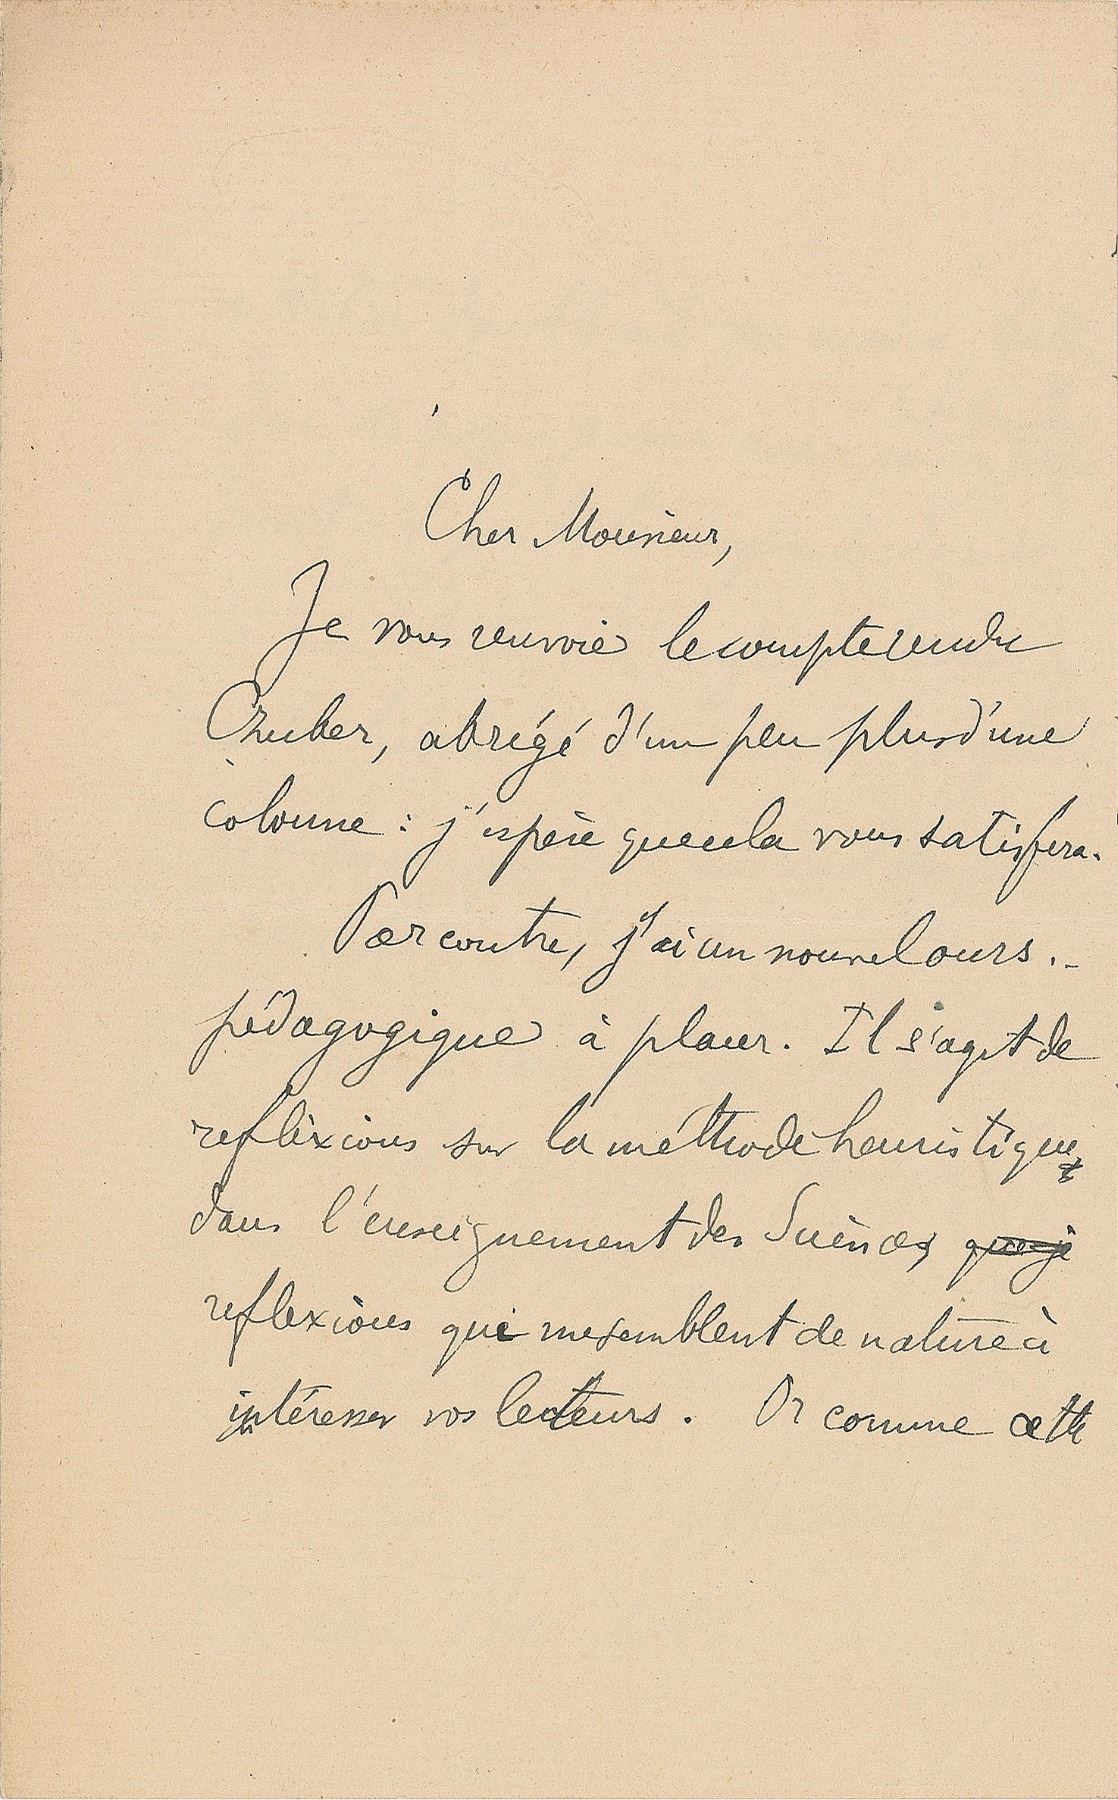 Cher Monsieur,
Je vous renvoie le compte rendu
Czuber, abrégé d'un peu plus d'une
colonne : j'espère que cela vous satisfera.
Par contre, j'ai un nouvel ours..
pédagogique à placer. Il s'agit de
reflexions sur la méthode heuristique
dans l'enseignement des Sciences, que je
reflexions qui me semblent de nature à
intéresser vos lecteurs. Or comme cette